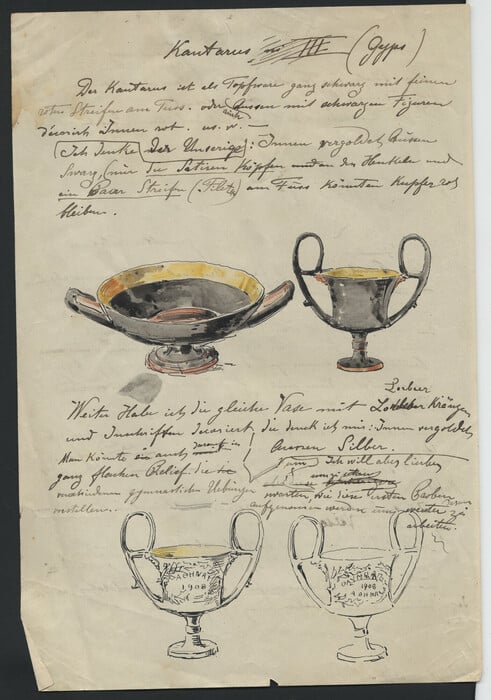 Kantarus III (Gyps)
Der Kantarus ist als Topfware ganz schwarz mit feinen
roten Streifen am Fuss. oder Aussen mit schwarzen Figuren
decorirt Innen rot. us. w. —
(Ich denke der Unserige: Innen vergoldet, Aussen
Swarz, (nur die Satiren Köpfen und an den Henkeln und
ein Paar Streife (Filets) am Fuss könnten Kupfer rot
bleiben.
Weiter Habe ich die gleiche Vase mit Lorbeer Kränzen
und Inschriften decoriert, die denk ich mir: Innen vergoldet,
Aussen Silber.
Man könnte auch darauf in
ganz flachen Relief die
verschiedenen gymnastischen Uebungen
vorstellen..
Ich will aber lieber
warten, wie diese ersten Proben
aufgenommen werden um weiter zu
arbeiten.
ΑΘΗΝΑΙ
1908
1908
ΑΘΗΝΑΙ